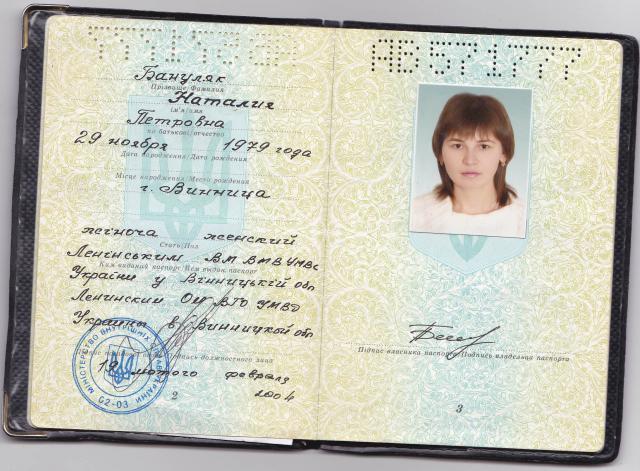 Бануляк
Прізвище/Фамилия
Наталия
ім'я/имя
Петровна
по батькові/отчество
29 ноября 1979 года
Дата народження/Дата рождения
Місце народження/Место рождения
г. Винница
жіноча женский
Стать/Пол
Ленінським ВМ ВМВ УМВС
Ким виданий паспорт/Кем выдан паспорт
України у Вінницькій обл
Ленинским ОМ ВГО УМВД
Украины в Винницкой обл
подпись должностного лица
лютого февраля
2004
МІНІСТЕРСТВО ВНУТРІШНІХ СПРАВ УКРАЇНИ
02-03
2
АВ571777
Підпис власника паспорта/Подпись владельца паспорта
3